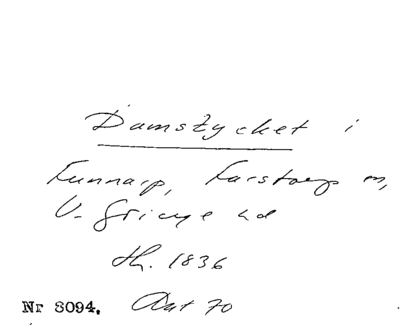 Damstycket i
Funnarp, Farstorp sn,
V. Göinge hd
th. 1836
Nr 8094. Aut 70